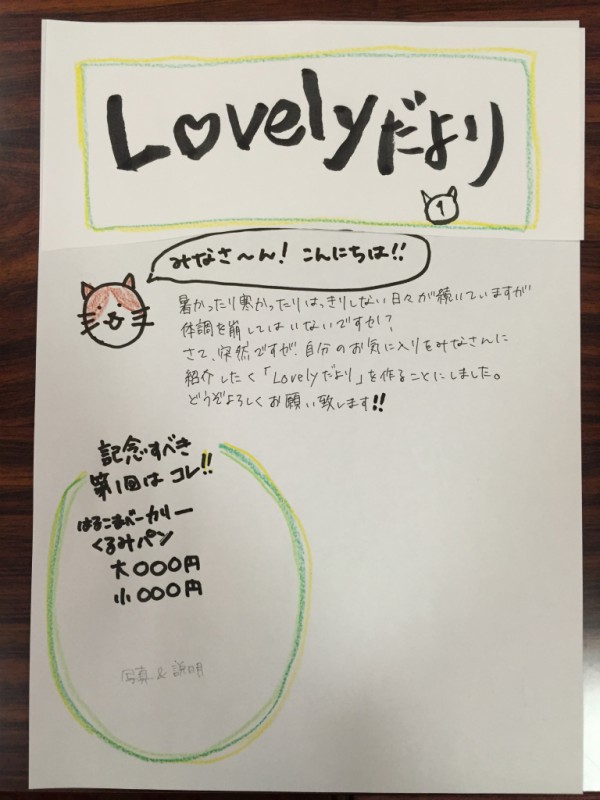 Lovelyだより
1
みなさ〜ん! こんにちは!!
暑かったり寒かったりはっきりしない日々が続いていますが
体調を崩してはいないですか?
さて、突然ですが、自分のお気に入りをみなさんに
紹介したく「Lovelyだより」を作ることにしました。
どうぞよろしくお願い致します!!
記念すべき
第1回はコレ!!
はるこまベーカリー
くるみパン
大〇〇〇円
小〇〇〇円
写真&説明